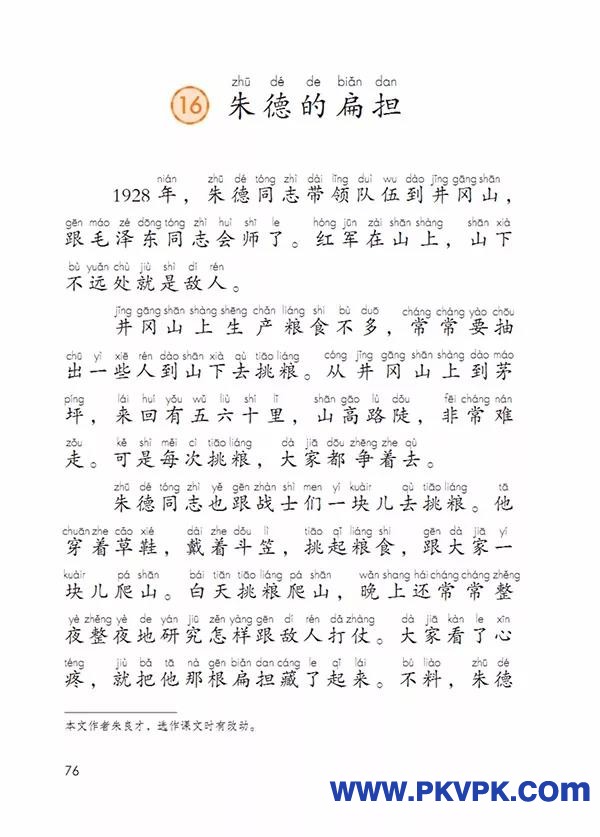 zhū dé de biǎn dan
16 朱德的扁担
nián zhū dé tóng zhì dài lǐng duì wu dào jǐng gāng shān
1928年，朱德同志带领队伍到井冈山，
gēn máo zé dōng tóng zhì huì shī le hóng jūn zài shān shàng shān xià
跟毛泽东同志会师了。红军在山上，山下
bù yuǎn chù jiù shì dí rén
不远处就是敌人。
jǐng gāng shān shàng shēng chǎn liáng shi bù duō cháng cháng yào chōu
井冈山上生产粮食不多，常常要抽
chū yì xiē rén dào shān xià qù tiāo liáng cóng jǐng gāng shān shàng dào máo
出一些人到山下去挑粮。从井冈山上到茅
píng lái huí yǒu wǔ liù shí lǐ shān gāo lù dǒu fēi cháng nán
坪，来回有五六十里，山高路陡，非常难
zǒu kě shì měi cì tiāo liáng dà jiā dōu zhēng zhe qù
走。可是每次挑粮，大家都争着去。
zhū dé tóng zhì yě gēn zhàn shì men yí kuàir qù tiāo liáng tā
朱德同志也跟战士们一块儿去挑粮。他
chuān zhe cǎo xié dài zhe dǒu lì tiāo qǐ liáng shi gēn dà jiā yí
穿着草鞋，戴着斗笠，挑起粮食，跟大家一
kuàir pá shān bái tiān tiāo liáng pá shān wǎn shang hái cháng cháng zhěng
块儿爬山。白天挑粮爬山，晚上还常常整
yè zhěng yè de yán jiū zěn yàng gēn dí rén dǎ zhàng dà jiā kàn le xīn
夜整夜地研究怎样跟敌人打仗。大家看了心
téng jiù bǎ tā nà gēn biǎn dan cáng le qǐ lái bú liào zhū dé
疼，就把他那根扁担藏了起来。不料，朱德
本文作者朱良才，选作课文时有改动。
76
WWW.PKVPK.COM